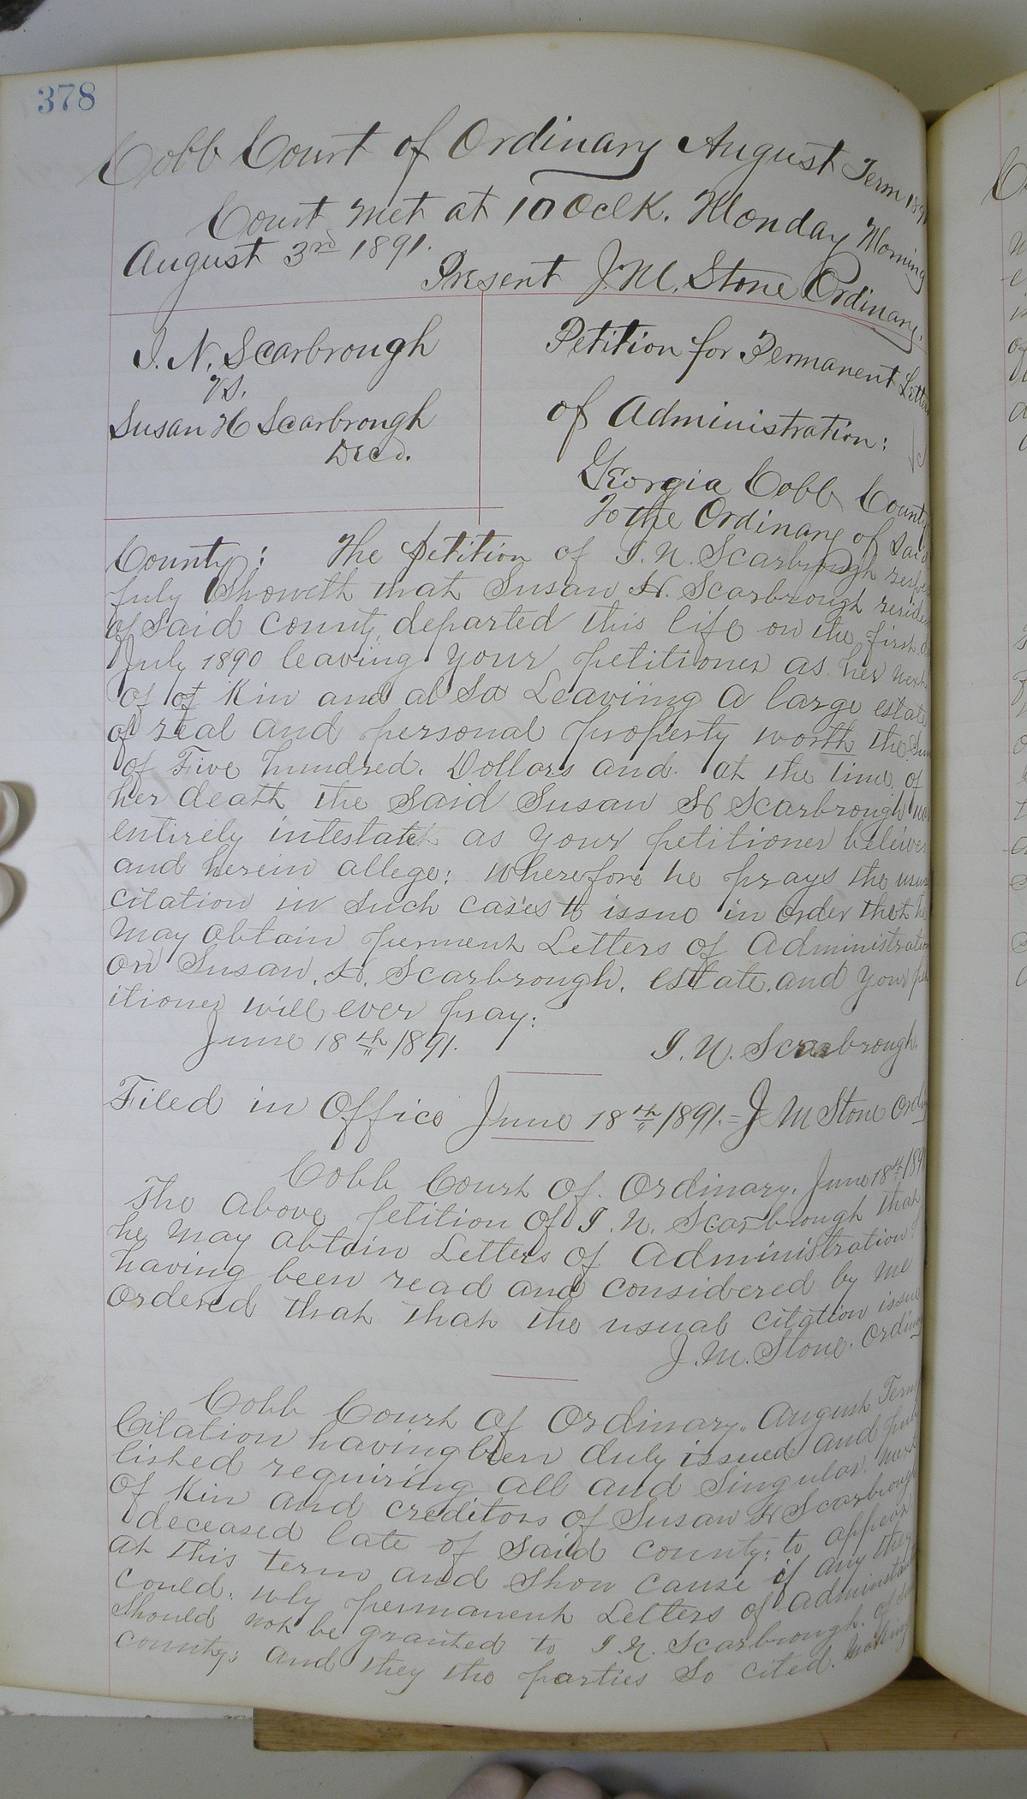 378
Cobb Court of Ordinary August Term 1891
Court Met at 10 OclK. Monday Morning
August 3rd 1891.
Present J. M. Stone Ordinary.
I. N. Scarbrough
vs.
Susan H Scarbrough
Decd.
Petition for Permanent Letters
of Administration:
Georgia Cobb County
To the Ordinary of Said
County: The petition of I. N. Scarbrough respect
fully Showeth that Susan H. Scarbrough resident
of Said County departed this life on the first
July 1890 leaving your petitioner as her next
of of Kin and also Leaviing a large estate
of real and personal property worth the Sum
of Five hundred. Dollars and at the time of
her death the Said Susan H Scarbrough was
entirely intestate as your petitioner beleives
and herein allege: Wherefore he prays the usual
citation in Such cases to issue in Order that he
May Obtain perment Letters of Administration
On Susan. H. Scarbrough. estate. and your pet
itioner will ever pray:
June 18th 1891.
I. N. Scarbrough.
Filed in Office June 18th 1891. = J M Stone Ordy
Cobb Court Of Ordinary. June 18th 1891
The above petition Of I. N. Scarbrough that
he May Obtain Letters of Administration
having been read and considered by Me
Ordered that that the usual citation issue
J. M. Stone. Ordinary
Cobb Court Of Ordinary. August Term
Citation having been duly issued and pub
lished requiring all and Singular. Next
Of Kin and creditors of Susan H Scarbrough
deceased late of Said county: to appear
at this term and Show cause if any they
could. why permanent Letters of Administration
Should not be granted to I. N. Scarbrough. of
county: and they the parties So cited. Making